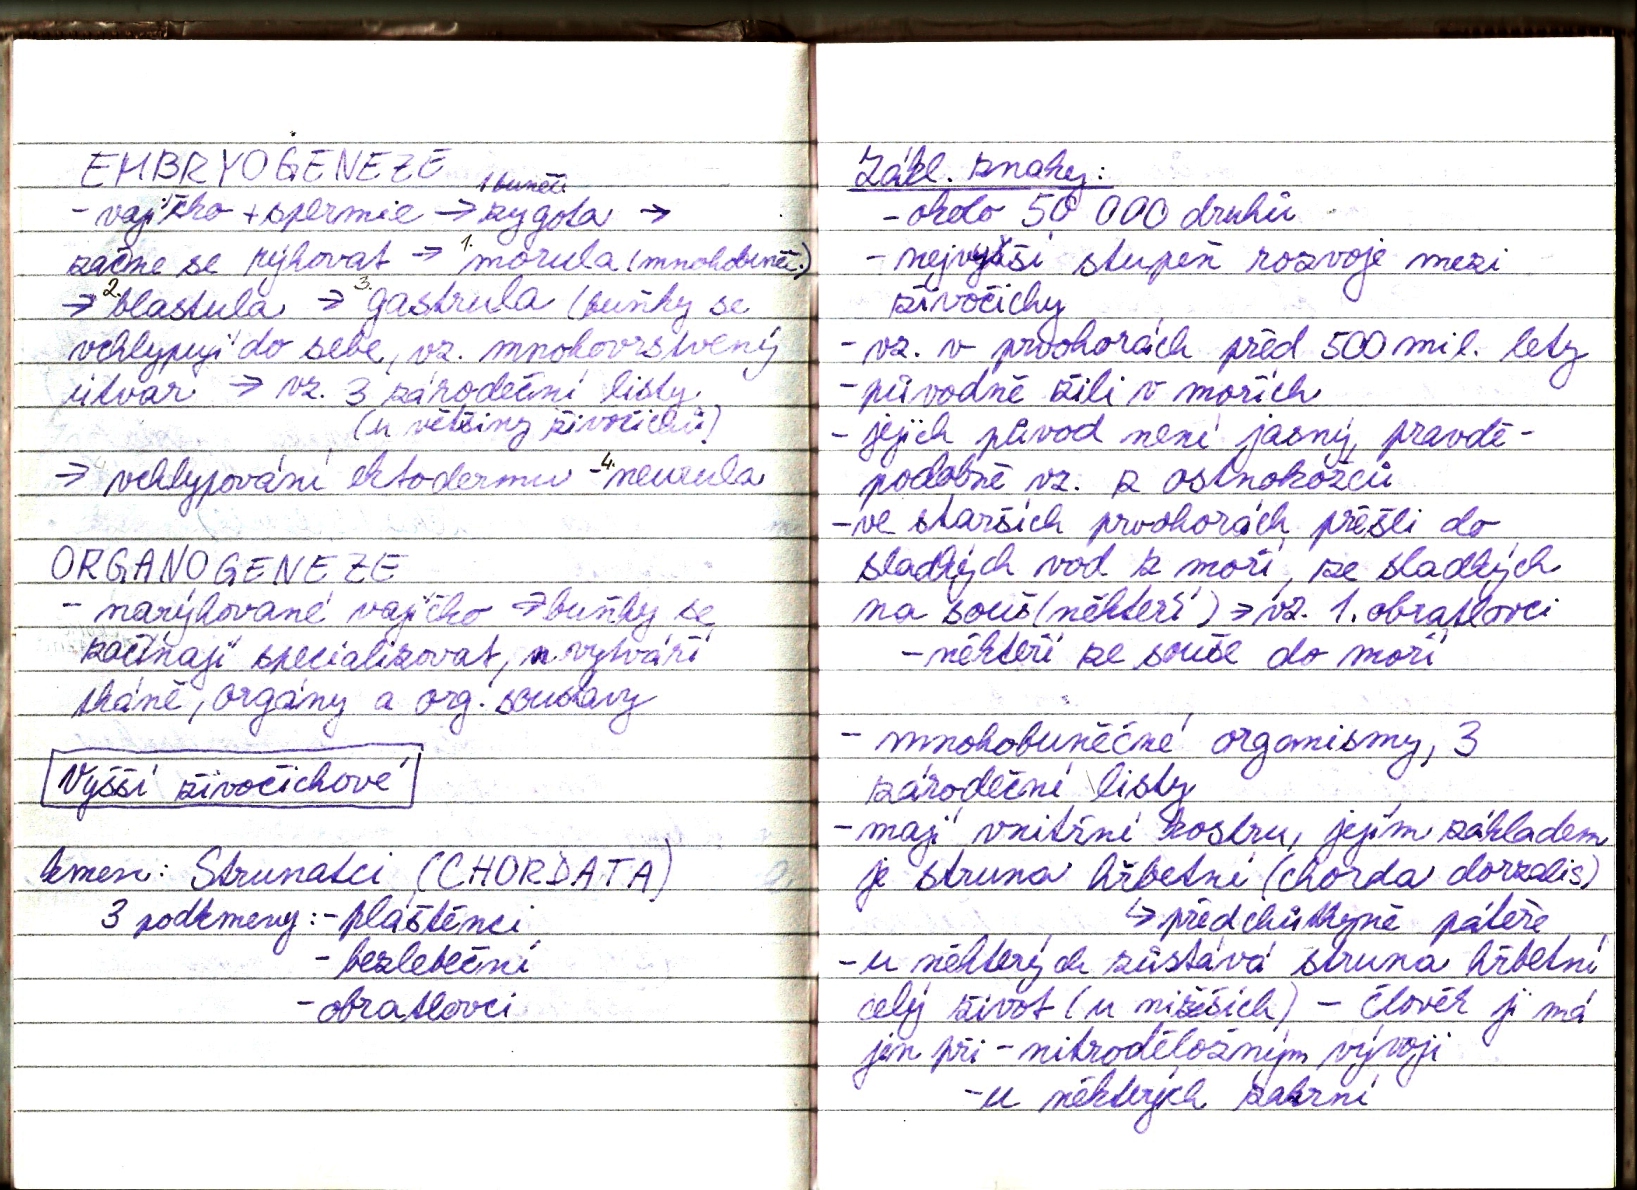 EMBRYOGENEZE
1 buněč.
- vajíčko + spermie → zygota →
začne se rýhovat → 1. morula (mnohobuněč.)
→ 2. blastula → 3. gastrula (buňky se
vchlypují do sebe, vz. mnohovrstvený
útvar → vz. 3 zárodeční listy
(u většiny živočichů)
→ vchlypování ektodermu - 4. neurula
ORGANOGENEZE
- narýhované vajíčko → buňky se
začínají specializovat, vytváří
tkáně, orgány a org. soustavy
Vyšší živočichové
kmen: Strunatci (CHORDATA)
3 podkmeny: - pláštěnci
- bezlebeční
- obratlovci
Zákl. znaky:
- okolo 50 000 druhů
- nejvyšší stupeň rozvoje mezi
živočichy
- vz. v prvohorách před 500 mil. lety
- původně žili v mořích
- jejich původ není jasný, pravdě-
podobně vz. z ostnokožců
- ve starších prvohorách přešli do
sladkých vod z moří, ze sladkých
na souš (někteří) → vz. 1. obratlovci
- někteří ze souše do moří
- mnohobuněčné organismy, 3
zárodeční listy
- mají vnitřní kostru, jejím základem
je struna hřbetní (chorda dorzalis)
↳ předchůdkyně páteře
- u některých zůstává struna hřbetní
celý život (u nižších) - člověk ji má
jen při - nitroděložným vývoji
- u některých zakrní